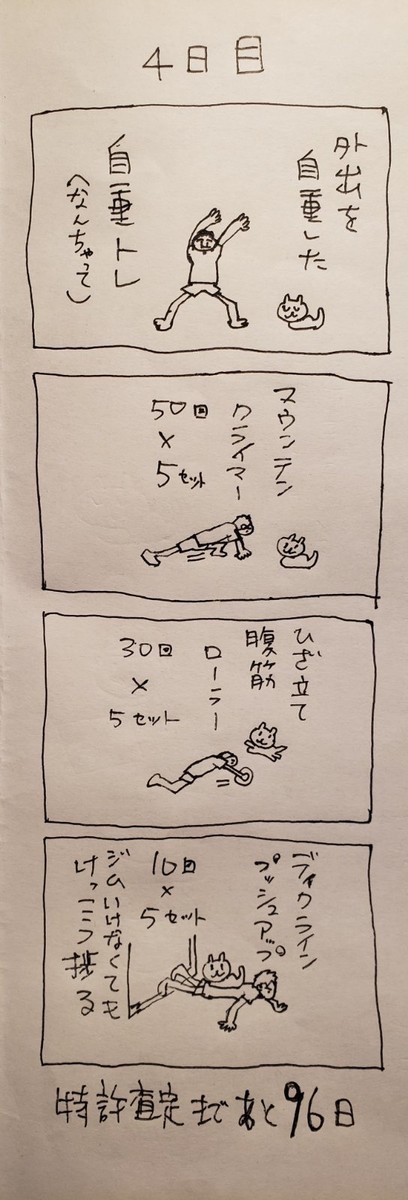 4日目
外出を
自重した
自重トレ
(なんちゃって)
マウンテン
クライマー
50回
×
5セット
ひざ立て
腹筋
ローラー
30回
×
5セット
ディクライン
プッシュアップ
10回
×
5セット
ジムいけなくても
けっこう捗る
特許査定まであと96日